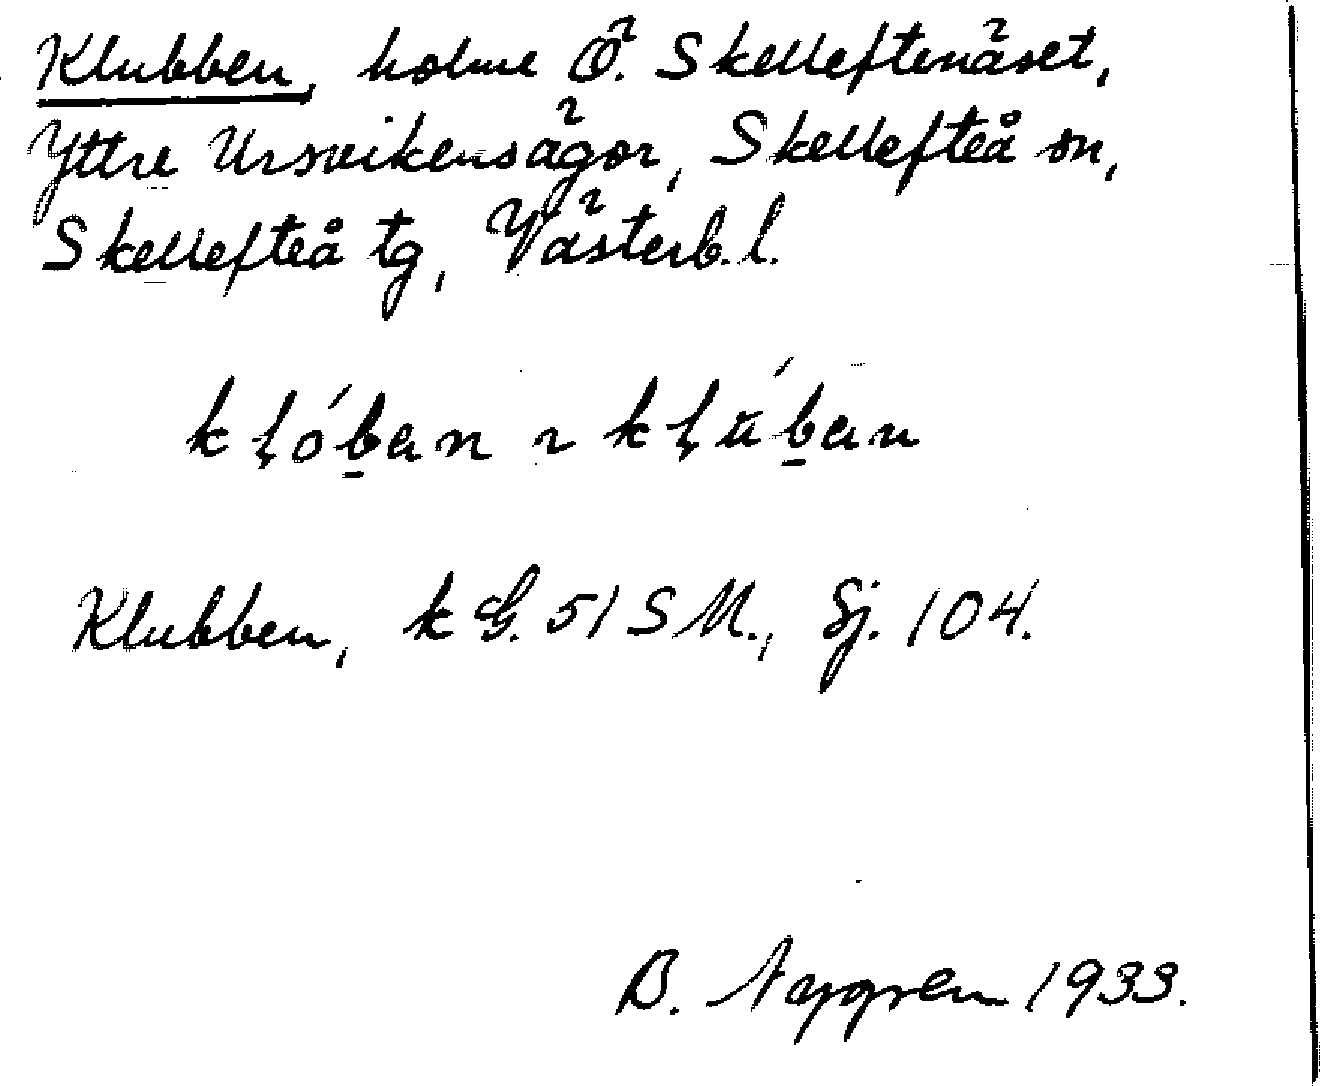 Klubben, holme Ö. Skelleftenäset,
Yttre Ursvikens ägor, Skellefteå sn,
Skellefteå tg, Västerb. l.
kḷób̲an ~ kḷúb̲an
Klubben, k G. 51 S M., Sj. 104.
B. Nygren 1933.